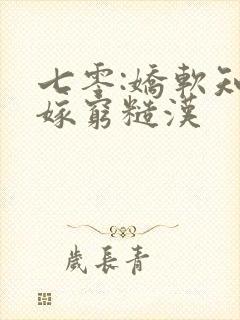 七零:嬌軟知
嫁窮糙漢
歲長青